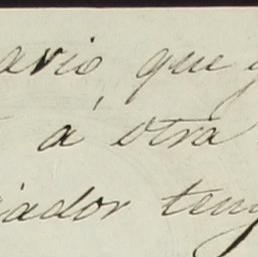 avió, que
á otra
iador teng